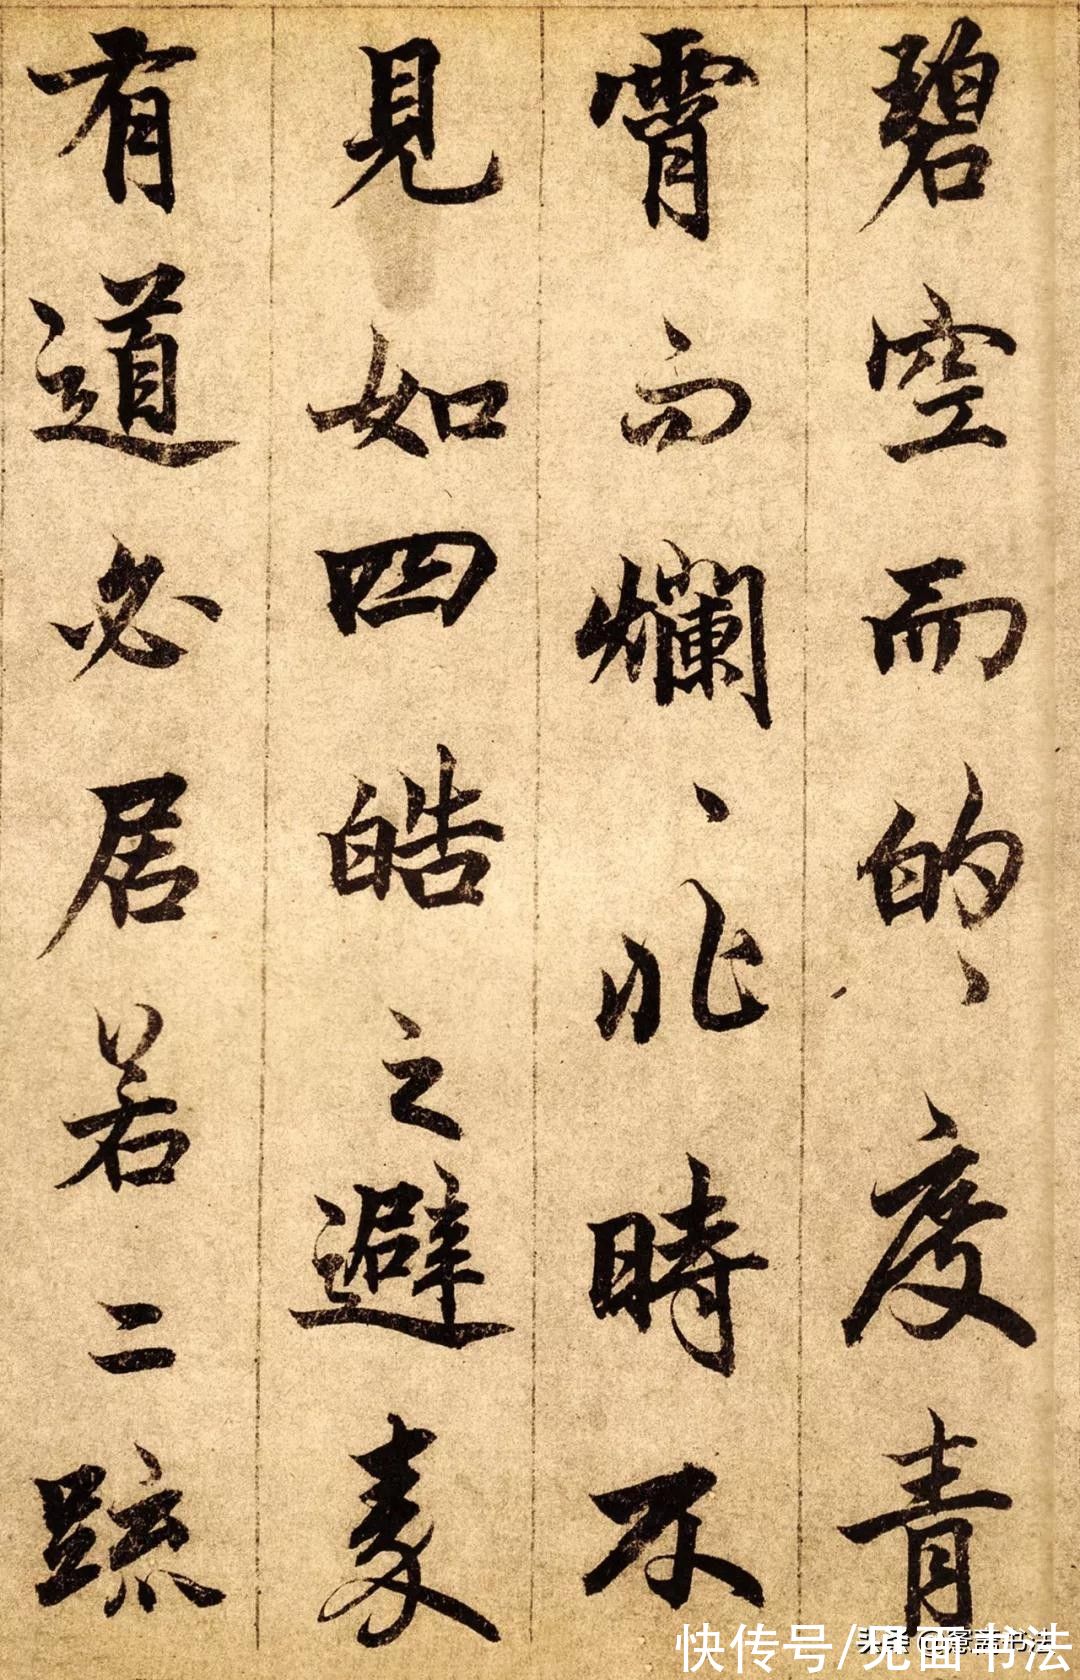 碧空而的、度青
霄而爛、非時不
見如四皓之避秦
有道必居若二疏
快传号/见面书法